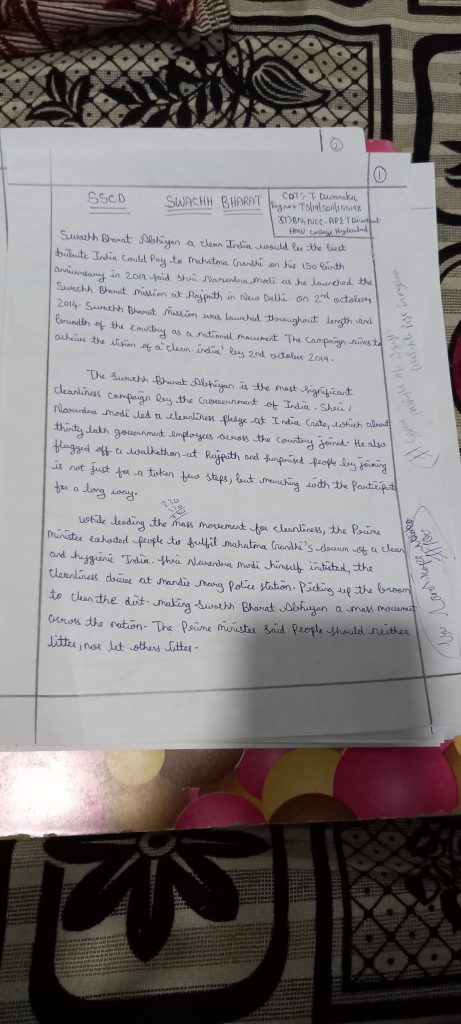 ②
①
SSCD SWACHH BHARAT
CDT:- T.
Reg no:-
BN, NCC. AP& T
HMV College Hyderabad
Swachh Bharat Abhiyan a clean India would be the best
tribute India Could Pay to Mahatma Gandhi on his 150 birth
anniversary in 2019 said Shri Narendra Modi as he launched the
Swachh Bharat Mission at Rajpath in New Delhi. on 2nd october
2014. Swachh Bharat Mission was launched throughout length and
breadth of the country as a national movement The Campaign aims to
acheive the vision of a 'clean india' by 2nd october 2019-
The Swachh Bharat Abhiyan is the most significant
cleanliness campaign by the Government of India. Shri,
Narendra modi led a cleanliness pledge at India Gate, which about
thirty lakh government employees across the country joined. He also
flagged off a walkathon at Rajpath and surprised people by joining
is not just for a token few steps, but marching with the Participants
for a long way.
While leading the mass movement for cleanliness, the Prime
minister exhorted people to fulfil mahatma Gandhi's dream of a clean
and hygienic India. Shri Narendra modi himself intiated, the
cleanliness drive at mandir marg Police station. Picking up the broom
to clean the dirt-making Swachh Bharat Abhiyan a mass movement
across the nation- The Prime Minister said People should neither
litter, nor let others litter-